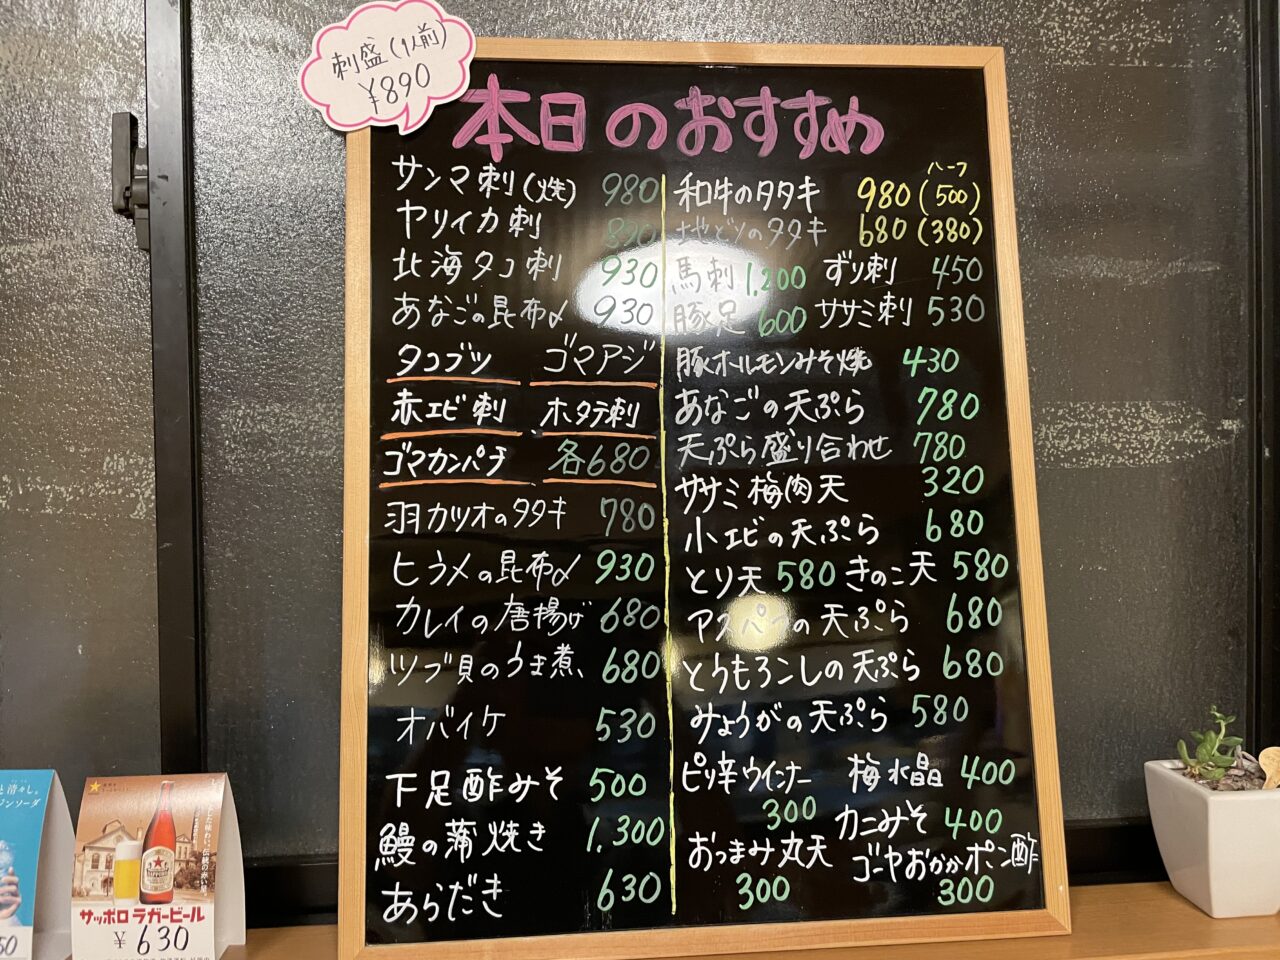 刺盛(1人前)
¥890
本日のおすすめ
サンマ刺(焼) 980
ヤリイカ刺 890
北海タコ刺 930
あなごの昆布〆 930
タコブツ ゴマアジ
赤エビ刺 ホタテ刺
ゴマカンパチ 各680
羽カツオのタタキ 780
ヒラメの昆布〆 930
カレイの唐揚げ 680
ツブ貝のうま煮 680
オバイケ 530
下足酢みそ 500
鰻の蒲焼き 1.300
あらだき 630
ハーフ
和牛のタタキ 980(500)
地どりのタタキ 680(380)
馬刺 1,200 ずり刺 450
豚足 600 ササミ刺 530
豚ホルモンみそ焼 430
あなごの天ぷら 780
天ぷら盛り合わせ 780
ササミ梅肉天 320
小エビの天ぷら 680
とり天 580 きのこ天 580
アスパラの天ぷら 680
とうもろこしの天ぷら 680
みょうがの天ぷら 580
ピリ辛ウインナー 300
梅水晶 400
カニみそ 400
おつまみ丸天 300
ゴーヤおかかポン酢 300
サッポロ ラガービール
¥630